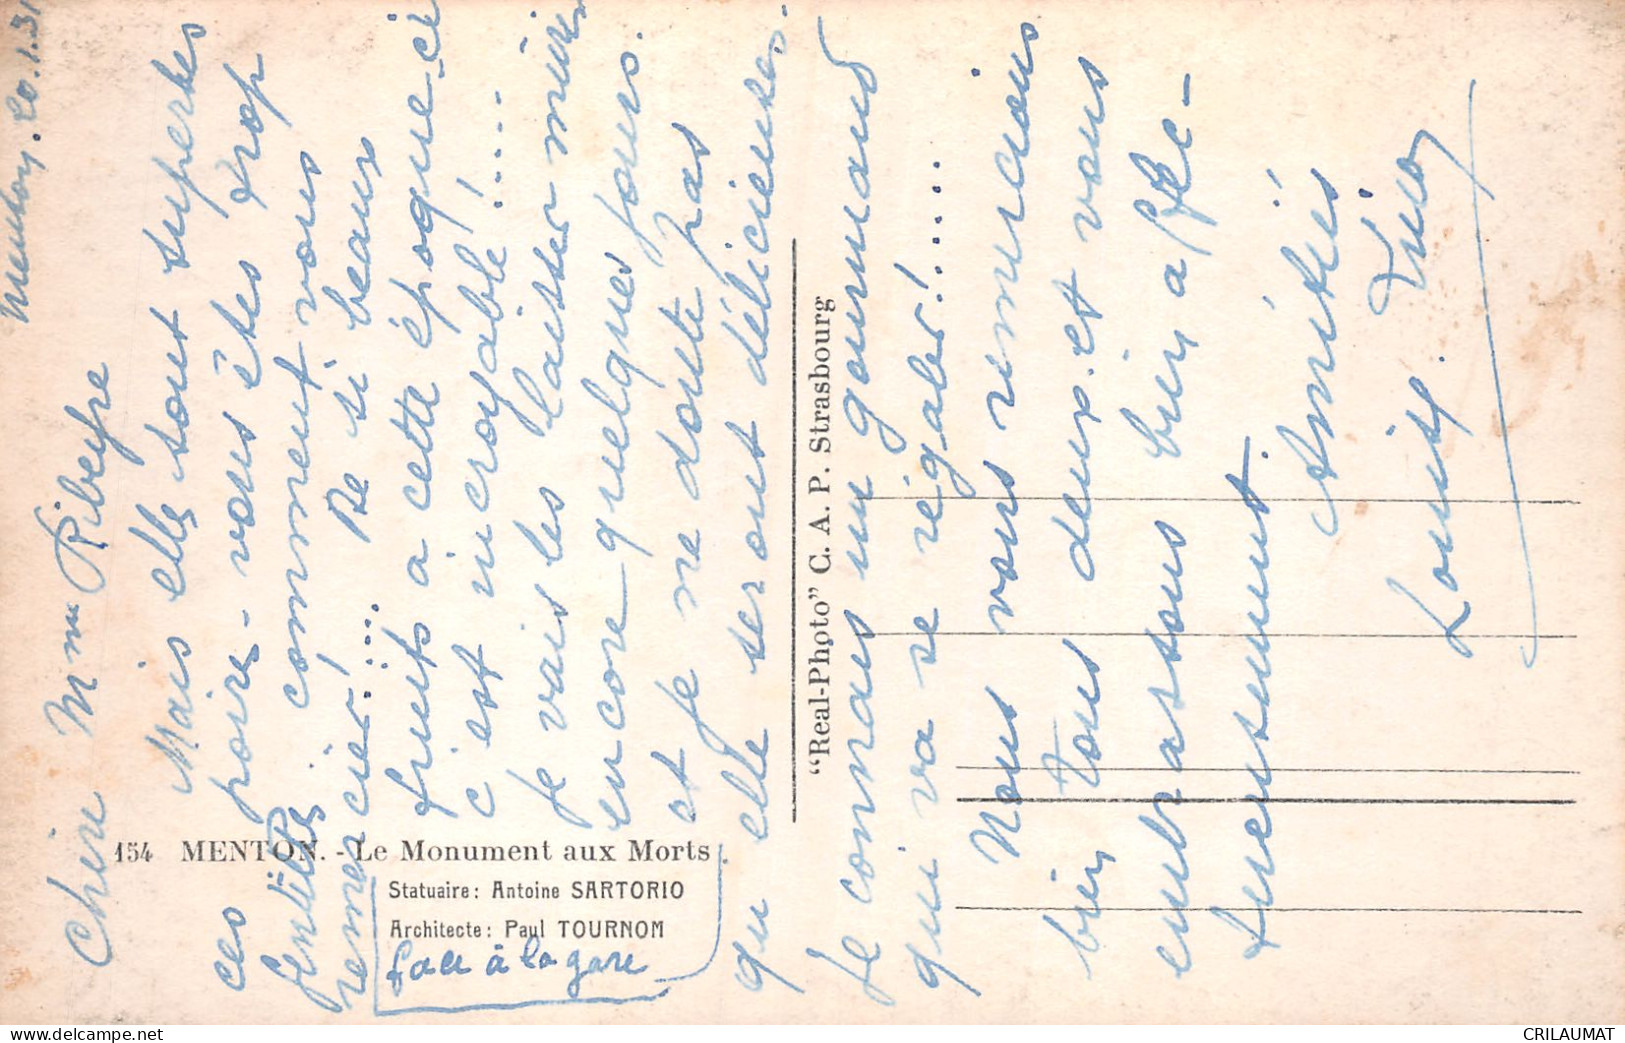 Menton. 20.1.31
Chère Mme Ribeyre
Mais elles sont superbes
ces poires - vous êtes trop
gentille comment vous
remercier!.... De si beaux
fruits à cette époque-ci
c'est incroyable!....
Je vais les laisser mûrir
encore quelques jours.
et je ne doute pas
qu'elle seront délicieuses.
Je connais un gourmand
qui va se régaler!.....
Nous vous remercions
bien tous deux. et vous
embrassons bien affec-
tueusement.
Amitiés
Louise.
154 MENTON. - Le Monument aux Morts
Statuaire: Antoine SARTORIO
Architecte: Paul TOURNOM
face à la gare
"Real-Photo" C. A. P. Strasbourg
CRILAUMAT
delcampe.net